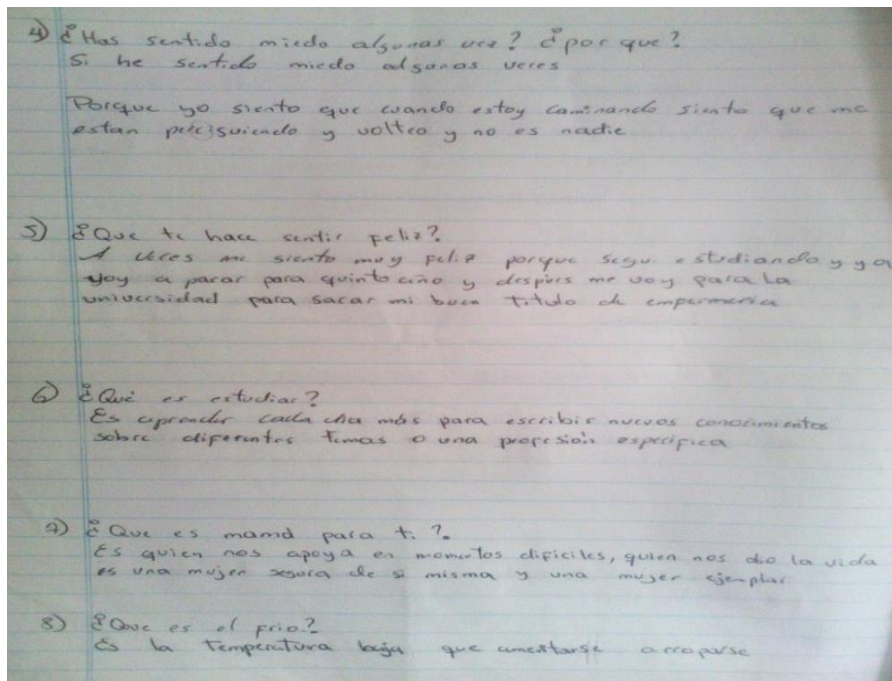 4) ¿Has sentido miedo algunas vez? ¿por que?
Si he sentido miedo algunas veces
Porque yo siento que cuando estoy caminando siento que me
estan percisuiendo y volteo y no es nadie
5) ¿Que te hace sentir feliz?
A veces me siento muy feliz porque segui estudiando y ya
voy a pasar para quinto año y despues me voy para la
universidad para sacar mi buen titulo de enfermeria
6) ¿Qué es estudiar?
Es aprender cada dia más para escribir nuevos conocimientos
sobre diferentes temas o una profesión especifica
7) ¿Que es mamá para ti?
Es quien nos apoya en momentos dificiles, quien nos dio la vida
es una mujer segura de si misma y una mujer ejemplar
8) ¿Que es el frio?
Es la temperatura baja que arroparse